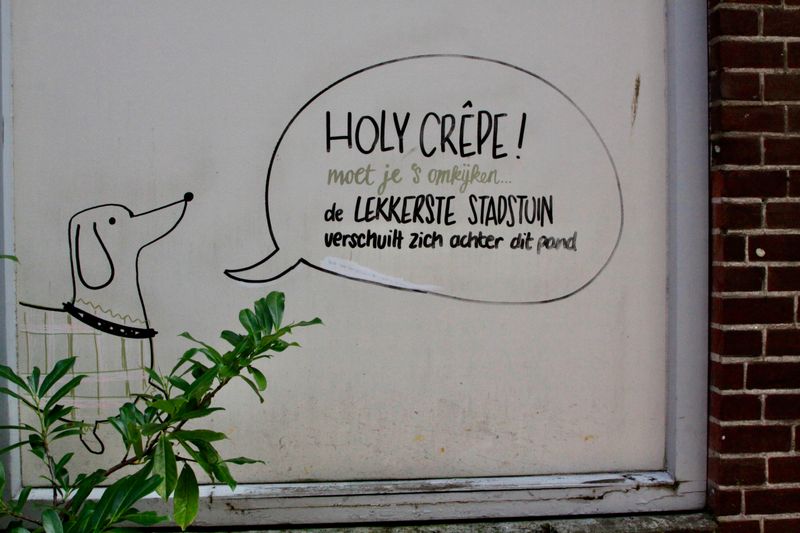 HOLY CRÊPE!
moet je 's omkijken...
de LEKKERSTE STADSTUIN
verschuilt zich achter dit pand